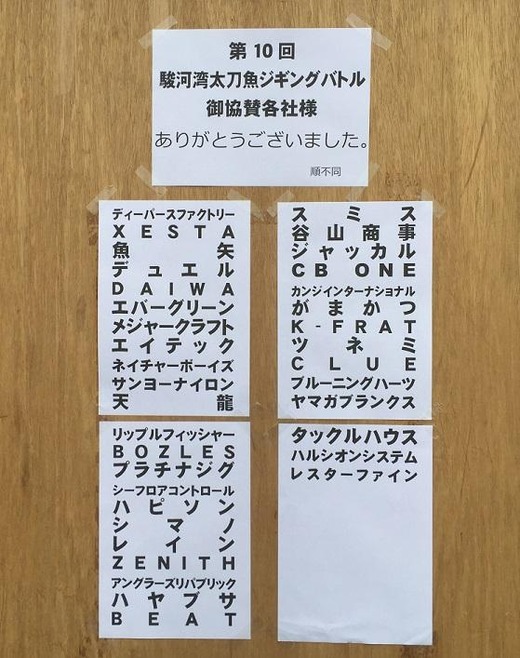 第10回
駿河湾太刀魚ジギングバトル
御協賛各社様
ありがとうございました。
順不同
ディーパースファクトリー
XESTA
魚矢
デュエル
DAIWA
エバーグリーン
メジャークラフト
エイテック
ネイチャーボーイズ
サンヨーナイロン
天龍
スミス
谷山商事
ジャッカル
CB ONE
カンジインターナショナル
がまかつ
K-FRAT
ツネミ
CLUE
ブルーニングハーツ
ヤマガブランクス
リップルフィッシャー
BOZLES
プラチナジグ
シーフロアコントロール
ハピソン
シマノ
レイン
ZENITH
アングラーズリパブリック
ハヤブサ
BEAT
タックルハウス
ハルシオンシステム
レスターファイン